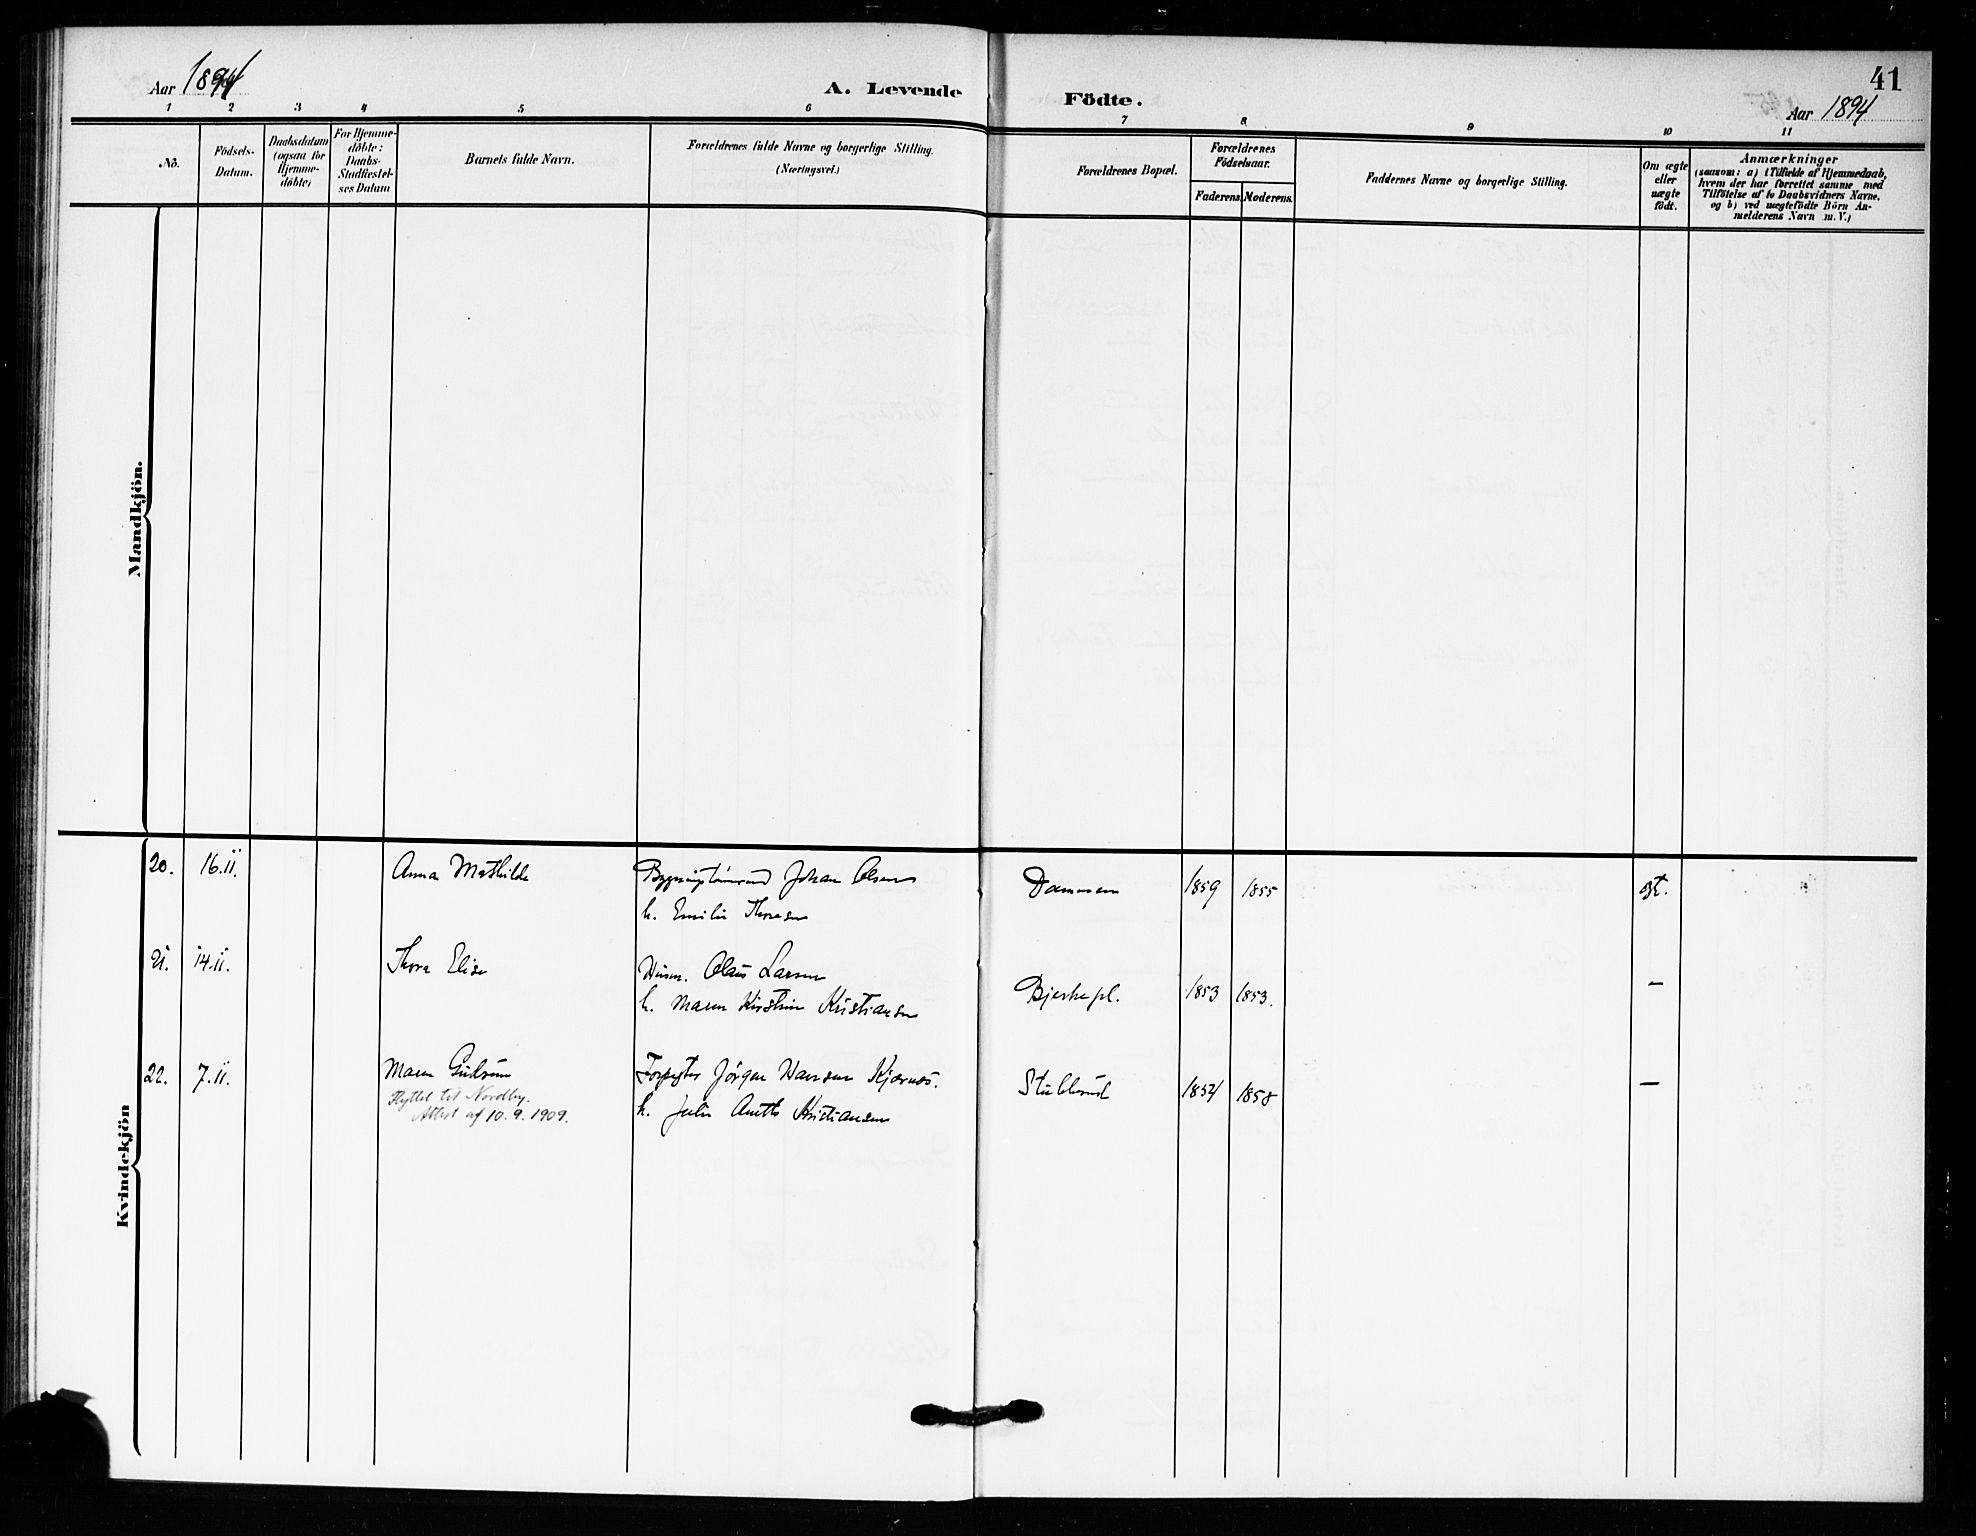 Aar 1894
A. Levende
Födte.
41
Aar 1894
1 2 3 4 5 6 7 8 9 10 11
No.
Födsels-
Datum.
Daabsdatum
(ogsaa for
Hjemme-
döbte)
For Hjemme-
döbte:
Daabs-
Stadfæstel-
ses Datum
Barnets fulde Navn.
Forældrenes fulde Navne og borgerlige Stilling.
(Næringsvei.)
Forældrenes Bopæl.
Forældrenes
Födselsaar.
Faderens. Moderens.
Faddernes Navne og borgerlige Stilling.
Om ægte
eller
uægte
født.
Anmærkninger
(saasom: a) i Tilfælde af Hjemmedaab,
hvem der har forrettet samme, med
Tilföielse af to Daabsvidners Navne,
og b) ved uægtefödte Börn An-
melderens Navn m. V.)
Mandkjön.
Kvindekjön
20. 16.11. Anna Mathilde Johan Olsen Dammen 1859 1855 ægt.
h. Emilie Thoresen
21. 14.11. Thora Elise Husm. Olaus Larsen
h. Maren Kirstine Kristiansen Bjerkepl. 1853 1853. —
22. 7.11. Maren Gudrun Forpagter Jörgen Hansen Kjærnes. Stubberud 1854 1858 —
Flyttet til Nordby.
Attest af 10.9.1909.
h. Julie Anette Kristiansen